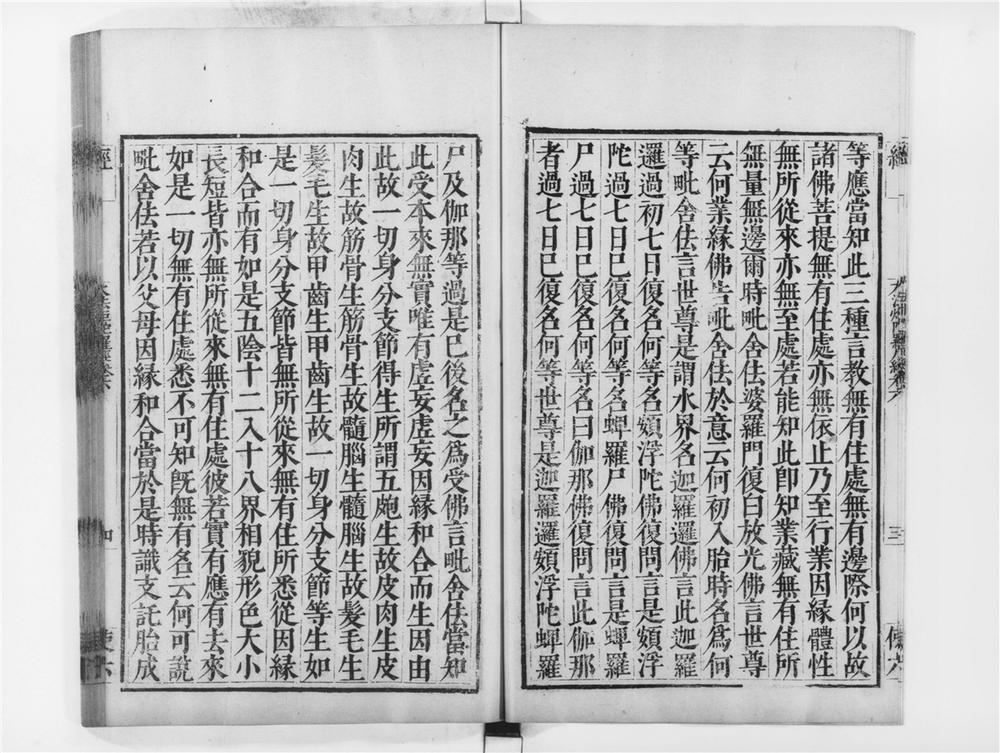 等應當知此三種言教無有住處無有邊際何以故
諸佛菩提無有住處亦無依止乃至行業因緣體性
無所從來亦無至處若能知此即知業藏無有住所
無量無邊爾時毗舍佉婆羅門復白放光佛言世尊
云何業緣佛告毗舍佉於意云何初入胎時名爲何
等毗舍佉言世尊是謂水界名迦羅邏佛言此迦羅
邏過初七日復名何等名頞浮陀佛復問言是頞浮
陀過七日已復名何等名蟬羅尸佛復問言是蟬羅
尸過七日已復名何等名曰伽那佛復問言此伽那
者過七日已復名何等世尊是迦羅邏頞浮陀蟬羅
尸及伽那等過是已後名之爲受佛言毗舍佉當知
此受本來無實唯有虛妄虛妄因緣和合而生因由
此故一切身分支節得生所謂五皰生故皮肉生皮
肉生故筋骨生筋骨生故髓腦生髓腦生故髮毛生
髮毛生故甲齒生甲齒生故一切身分支節等生如
是一切身分支節皆無所從來無有住所悉從因緣
和合而有如是五陰十二入十八界相貌形色大小
長短皆亦無所從來無有住處彼若實有應有去來
如是一切無有住處悉不可知旣無有名云何可說
毗舍佉若以父母因緣和合當於是時識支託胎成